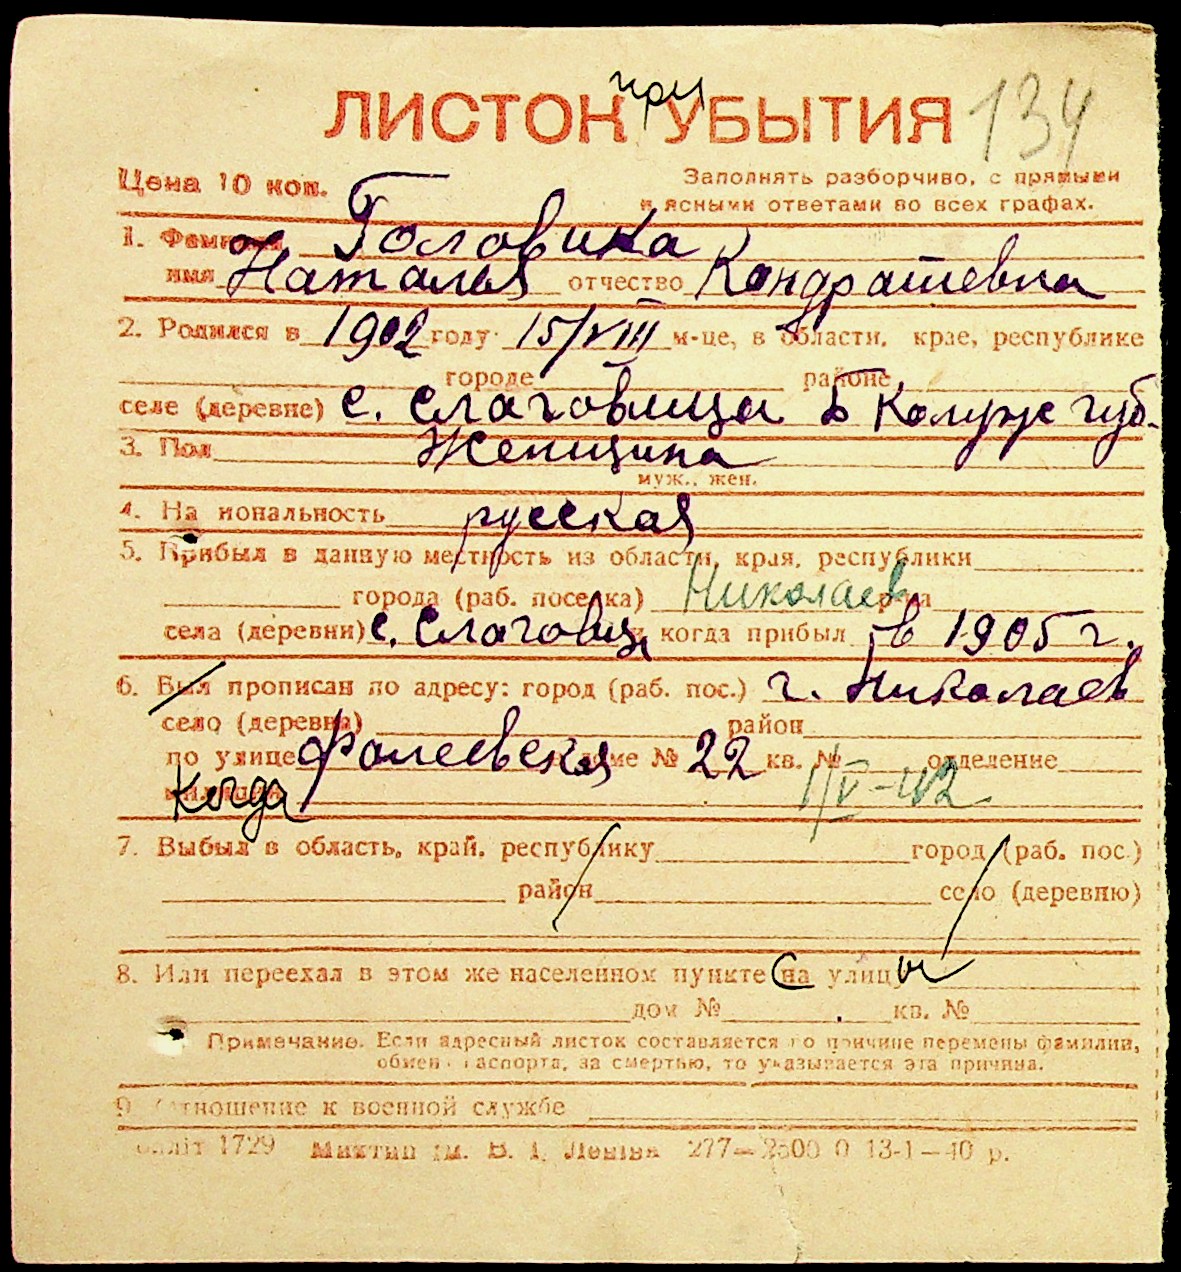 ЛИСТОК при УБЫТИЯ 134
Цена 10 коп.
Заполнять разборчиво, с прямыми
и ясными ответами во всех графах.
1. Фамилия Головина
имя Наталья отчество Кондратевна
2. Родился в 1902 году 15/VIII м-це, в области, крае, республике
городе районе
селе (деревне) с. Слаговищи Б Калуж губ.
3. Пол Женщина
муж., жен.
4. На иональность русская
5. Прибыл в данную местность из области, края, республики
города (раб. поселка) Николаев
села (деревни) с. Слаговищ и когда прибыл в 1905 г.
6. Был прописан по адресу: город (раб. пос.) г. Николаев
село (деревня) район
по улице Фалеевская доме № 22 кв. № отделение
милиции Когда 1/V-42
7. Выбыл в область, край, республику город (раб. пос.)
район село (деревню)
8. Или переехал в этом же населенном пункте с на улицы
дом № кв. №
Примечание. Если адресный листок составляется по причине перемены фамилии,
обмен паспорта, за смертью, то указывается эта причина.
9. Отношение к военной службе
1729 Миктип ім. В. І. Леніна 277—2500 0 13-1—40 р.